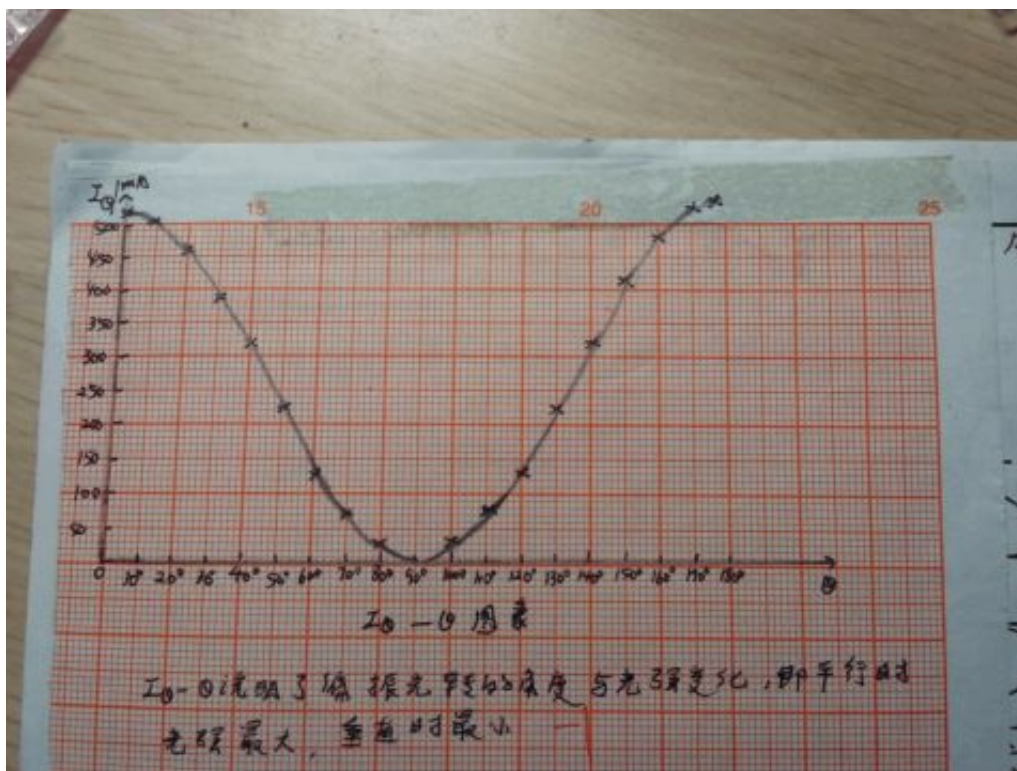 Iθ/mA
15 20 25
500
450
400
350
300
250
200
150
100
50
0 10° 20° 40° 50° 60° 70° 80° 90° 100° 110° 120° 130° 140° 150° 160° 170° 180°
θ
Iθ-θ图象
Iθ-θ说明了偏振光 的角度与光强变化,即平行时
光强最大,垂直时最小